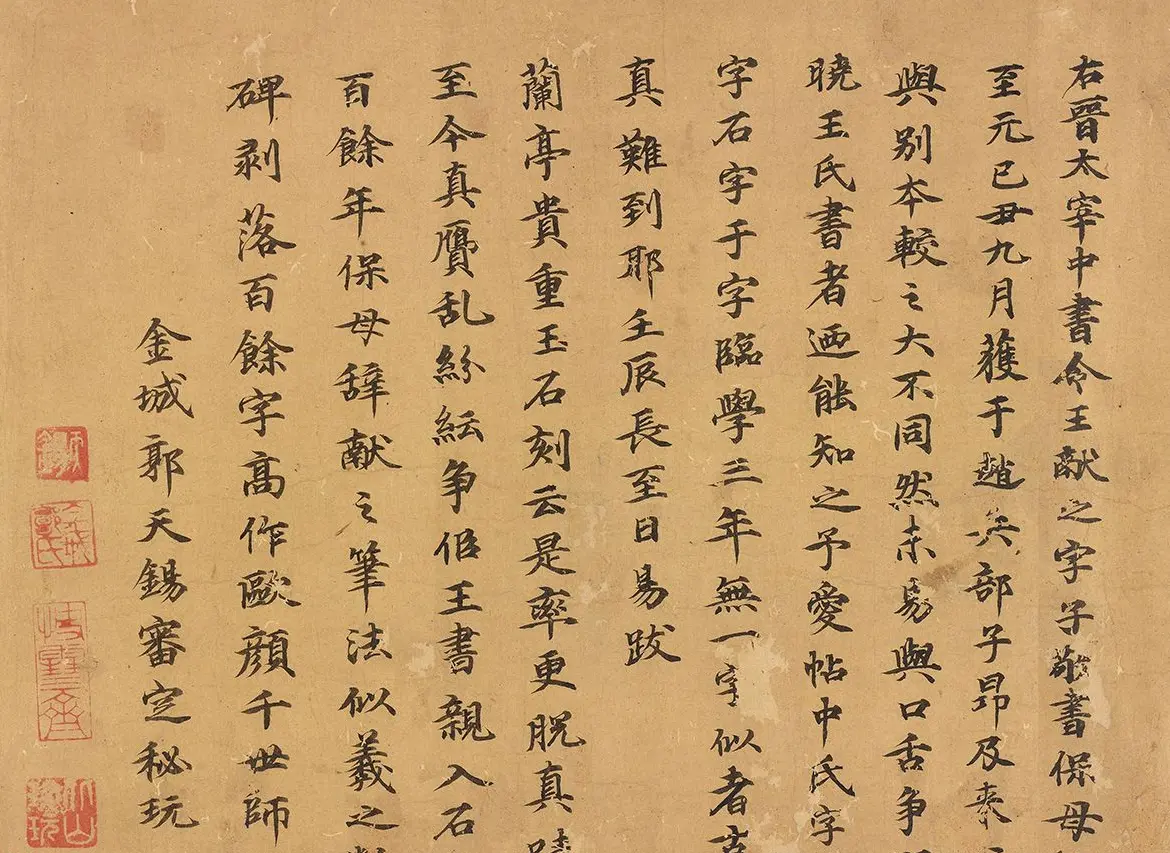 右晉太宰中書令王献之字子敬書保母
至元己丑九月獲于趙兵部子昂及來
與别本較之大不同然未易與口舌争
曉王氏書者迺能知之予愛帖中氏字
字石字于字臨學三年無一字似者
真難到耶壬辰長至日易跋
蘭亭貴重玉石刻云是率更脱真
至今真贗乱紛紜争侣王書親入石
百餘年保母辞献之筆法似羲之
碑剥落百餘字高作歐顔千世師
金城郭天錫審定秘玩